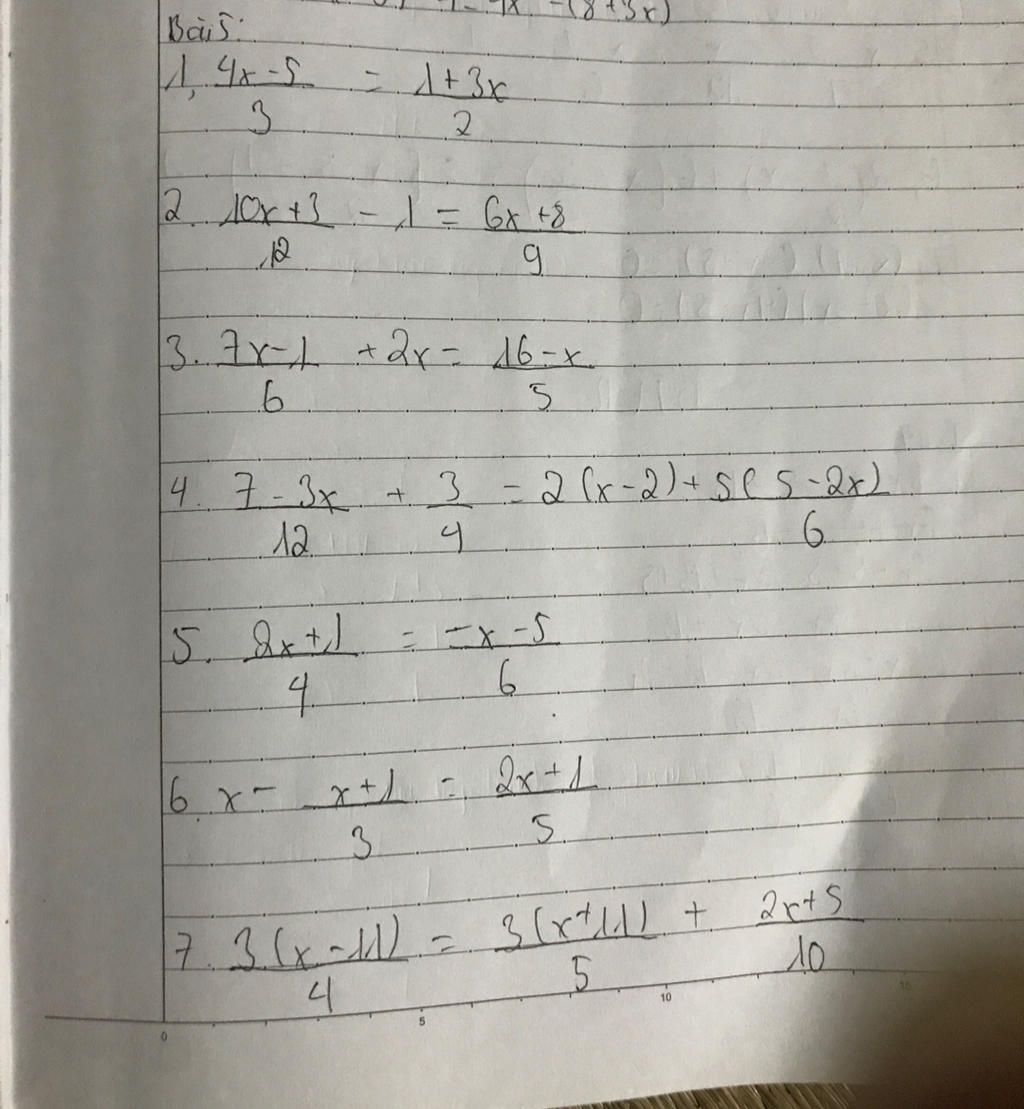 -(8+3x)
Bài 5:
1, (4x-5)/3 = (1+3x)/2
2. (10x+3)/12 - 1 = (6x+8)/9
3. (7x-1)/6 + 2x = (16-x)/5
4. (7-3x)/12 + 3/4 = 2(x-2) + 5(5-2x)/6
5. (2x+1)/4 = (-x-5)/6
6. x - (x+1)/3 = (2x+1)/5
7. 3(x-11)/4 = 3(x+11)/5 + (2x+5)/10
0 5 10 15